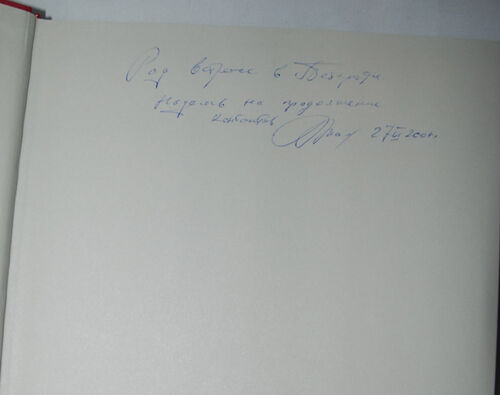 Рад встрече в Белграде
Надеюсь на продолжение
контактов 27 III 2001г.